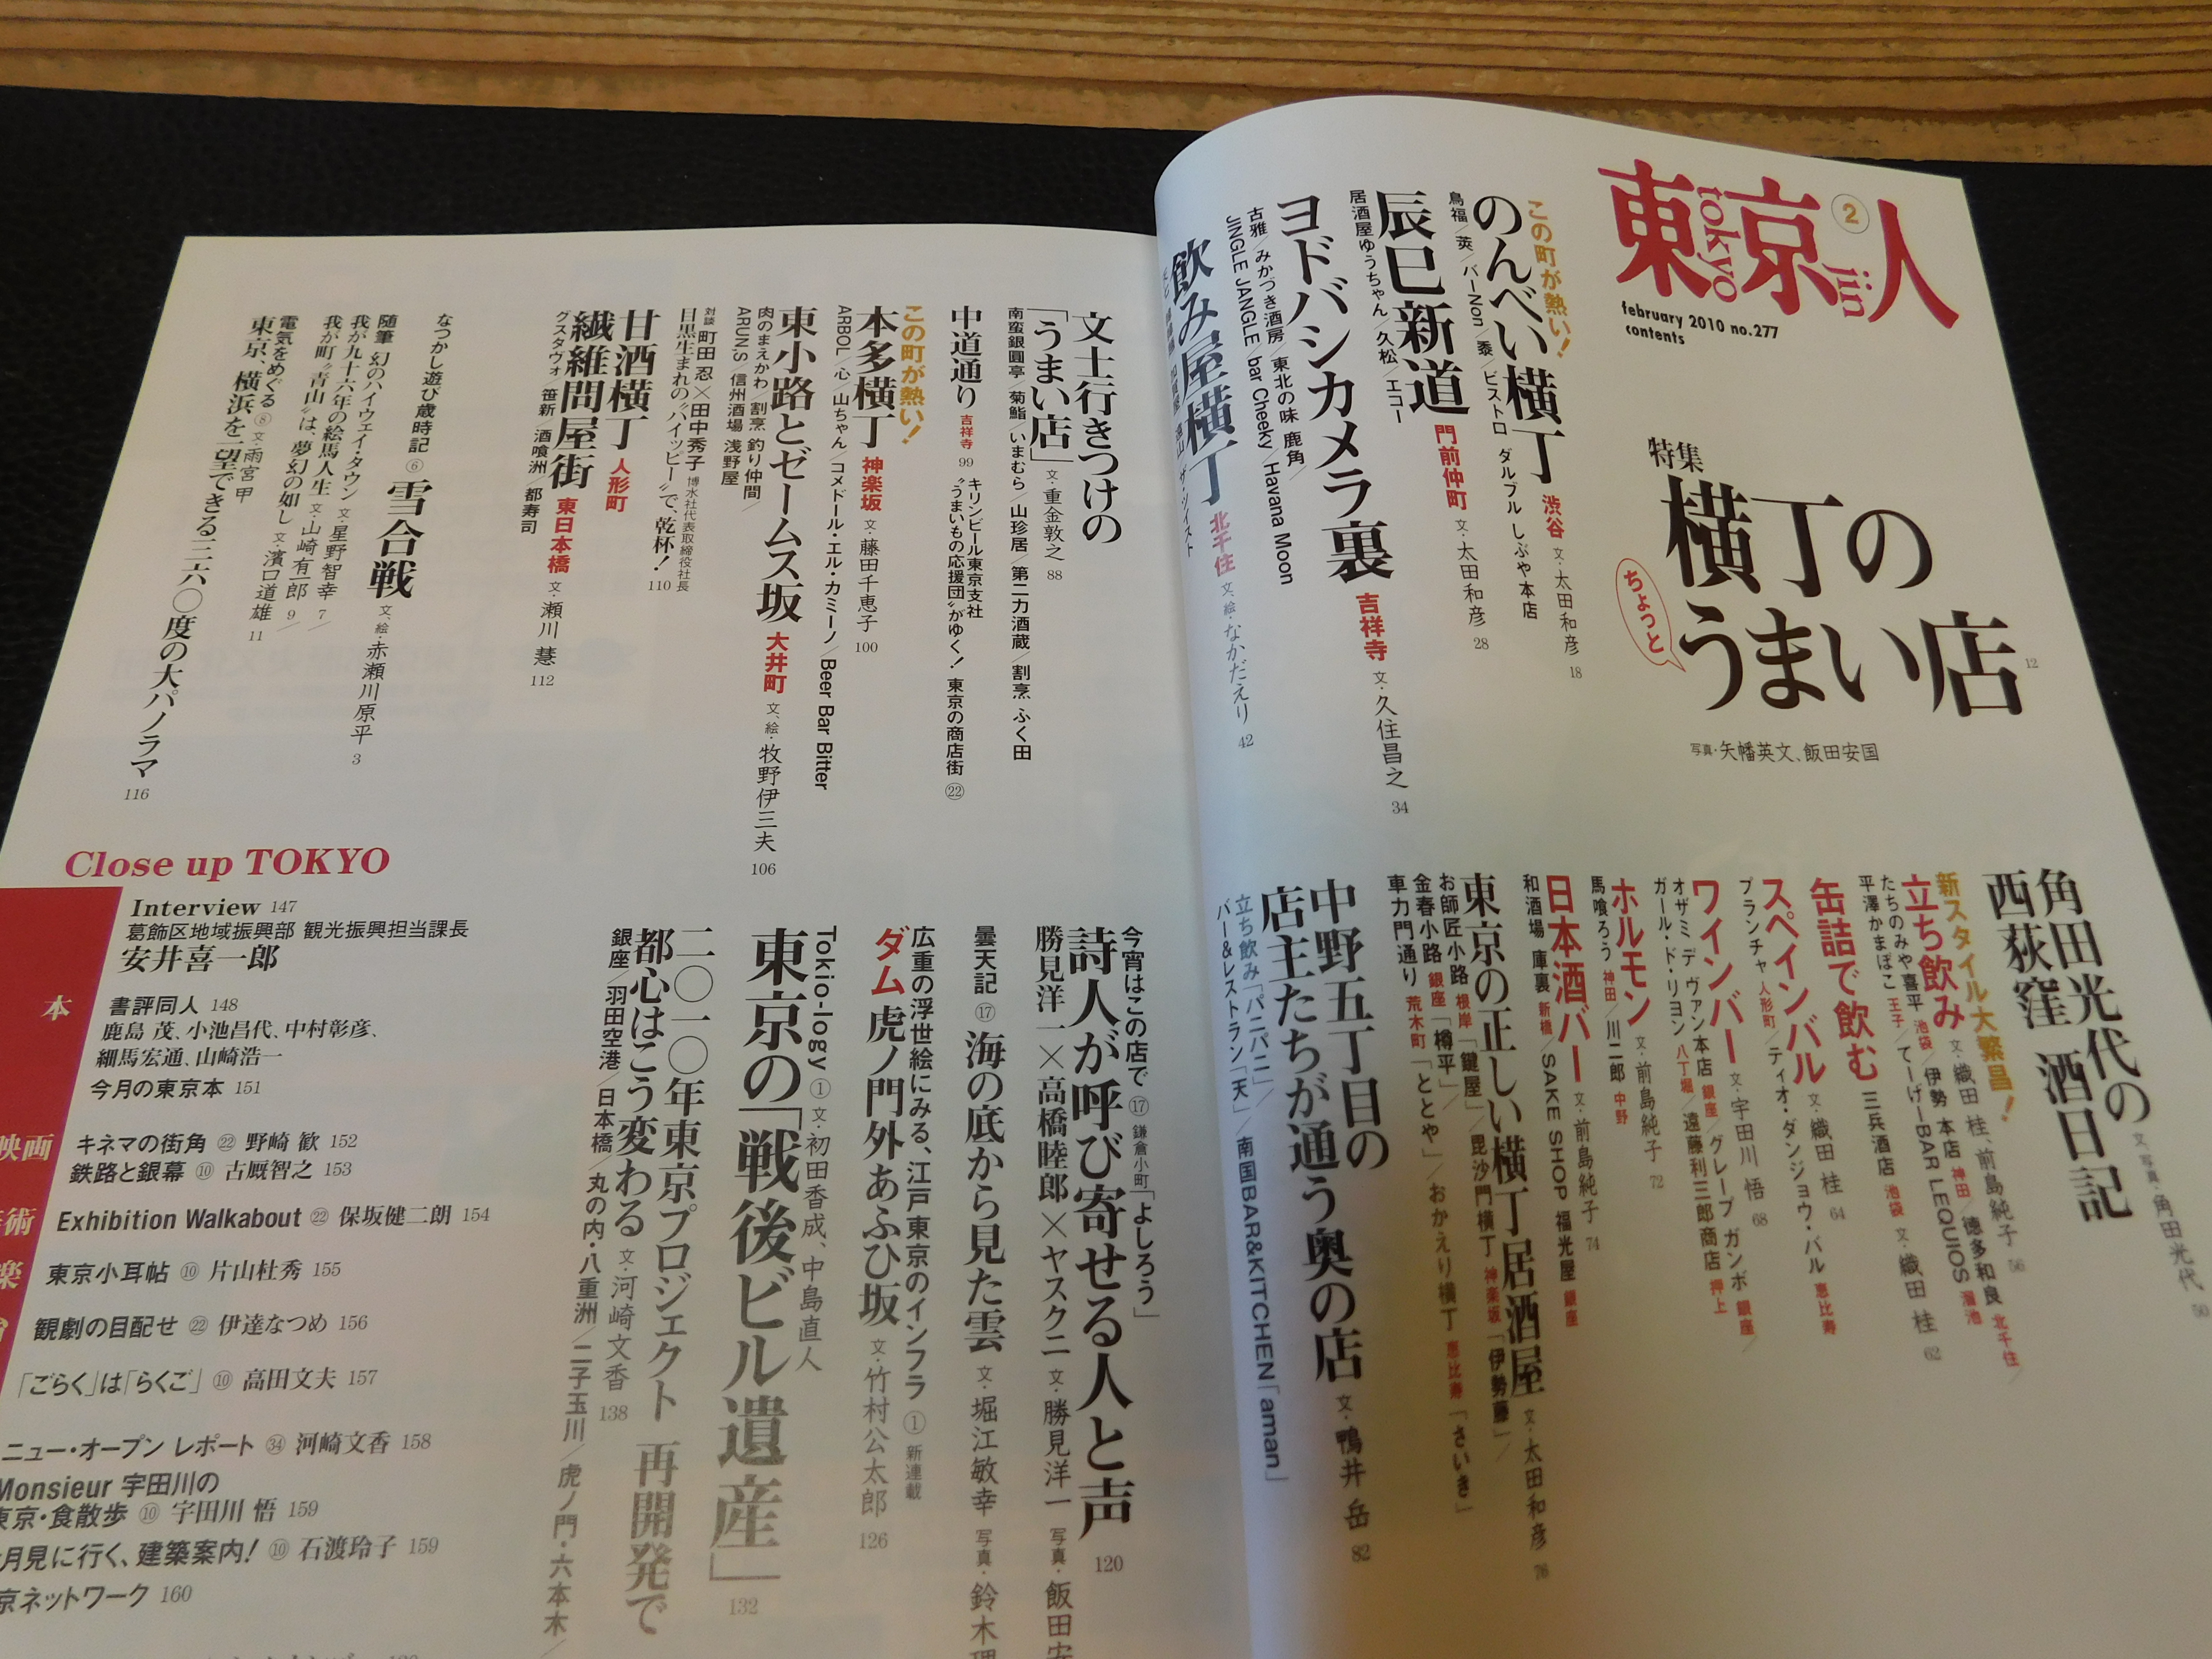 東京人
tokyo
jin
2
february 2010 no.277
contents
特集
横丁の
ちょっと
うまい店 12
写真・矢幡英文、飯田安国
この町が熱い!
のんべい横丁 渋谷 文・太田和彦 18
鳥福/莢/バーNon/黍/ビストロ ダルブル しぶや本店
辰巳新道 門前仲町 文・太田和彦 28
居酒屋ゆうちゃん/久松/エコー
ヨドバシカメラ裏 吉祥寺 文・久住昌之 34
古雅/みかづき酒房/東北の味 鹿角/
JINGLE JANGLE bar Cheeky/Havana Moon
飲み屋横丁 北千住 文、絵・なかだえり 42
角田光代の
西荻窪 酒日記 文、写真・角田光代 50
新スタイル大繁昌!
立ち飲み 文・織田 桂、前島純子 56
たちのみや喜平 池袋/伊勢 本店 神田/徳多和良 北千住/
平澤かまぼこ 王子/てーげーBAR LEQUIOS 溜池
缶詰で飲む 三兵酒店 池袋 文・織田 桂 62
スペインバル 文・織田 桂 64
ブランチャ 人形町/ティオ・ダンジョウ・バル 恵比寿
ワインバー 文・宇田川 悟 68
オザミ デ ヴァン本店 銀座/グレープ ガンボ 銀座/
ガール・ド・リヨン 八丁堀/遠藤利三郎商店 押上
ホルモン 文・前島純子 72
馬喰ろう 神田/川二郎 中野
日本酒バー 文・前島純子 74
和酒場 庫裏 新橋/SAKE SHOP 福光屋 銀座
東京の正しい横丁居酒屋 文・太田和彦 76
お師匠小路 根岸「鍵屋」/毘沙門横丁 神楽坂「伊勢藤」/
金春小路 銀座「樽平」/おかえり横丁 恵比寿「さいき」
車力門通り 荒木町「ととや」
中野五丁目の
店主たちが通う奥の店 文・鴨井 岳 82
立ち飲み「パニパニ」/南国BAR&KITCHEN「aman」
バー&レストラン「天」/
文士行きつけの
「うまい店」 文・重金敦之 88
南蛮銀圓亭/菊鮨/いまむら/山珍居/第二力酒蔵/割烹 ふく田
中道通り 吉祥寺 99
キリンビール東京支社
“うまいもの応援団”がゆく! 東京の商店街 ㉒
この町が熱い!
本多横丁 神楽坂 文・藤田千恵子 100
ARBOL/心/山ちゃん/コメドール・エル・カミーノ/Beer Bar Bitter
東小路とゼームス坂 大井町 文、絵・牧野伊三夫 106
肉のまえかわ/割烹 釣り仲間/
ARUN.S/信州酒場 浅野屋
対談 町田 忍×田中秀子 博水社代表取締役社長
目黒生まれの“ハイッピー”で、乾杯! 110
甘酒横丁 人形町
繊維問屋街 東日本橋 文・瀬川 慧 112
グスタヴォ/笹新/酒喰洲/都寿司
なつかし遊び歳時記 ⑥ 雪合戦 文、絵・赤瀬川原平 3
随筆 幻のハイウェイ・タウン 文・星野智幸 7/
我が九十六年の絵馬人生 文・山崎有一郎 9/
我が町“青山”は、夢幻の如し 文・濱口道雄 11
電気をめぐる ⑧ 文・雨宮 甲
東京、横浜を一望できる三六〇度の大パノラマ 116
今宵はこの店で ⑰ 鎌倉小町「よしろう」
詩人が呼び寄せる人と声 120
勝見洋一×高橋睦郎×ヤスクニ 文・勝見洋一 写真・飯田安
曇天記 ⑰ 海の底から見た雲 文・堀江敏幸 写真・鈴木理
広重の浮世絵にみる、江戸東京のインフラ ① 新連載
ダム 虎ノ門外あふひ坂 文・竹村公太郎 126
Tokio-logy ① 文・初田香成、中島直人
東京の「戦後ビル遺産」 132
二〇一〇年東京プロジェクト 再開発で
都心はこう変わる 文・河崎文香 138
銀座/羽田空港/日本橋/丸の内・八重洲/二子玉川/虎ノ門・六本木/
Close up TOKYO
Interview 147
葛飾区地域振興部 観光振興担当課長
安井喜一郎
本
書評同人 148
鹿島 茂、小池昌代、中村彰彦、
細馬宏通、山崎浩一
今月の東京本 151
映画
キネマの街角 ㉒ 野崎 歓 152
鉄路と銀幕 ⑩ 古厩智之 153
術
Exhibition Walkabout ㉒ 保坂健二朗 154
楽
東京小耳帖 ⑩ 片山杜秀 155
観劇の目配せ ㉒ 伊達なつめ 156
「ごらく」は「らくご」 ⑩ 高田文夫 157
ニュー・オープン レポート ㉞ 河崎文香 158
Monsieur 宇田川の
東京・食散歩 ⑩ 宇田川 悟 159
月見に行く、建築案内! ⑩ 石渡玲子 159
京ネットワーク 160